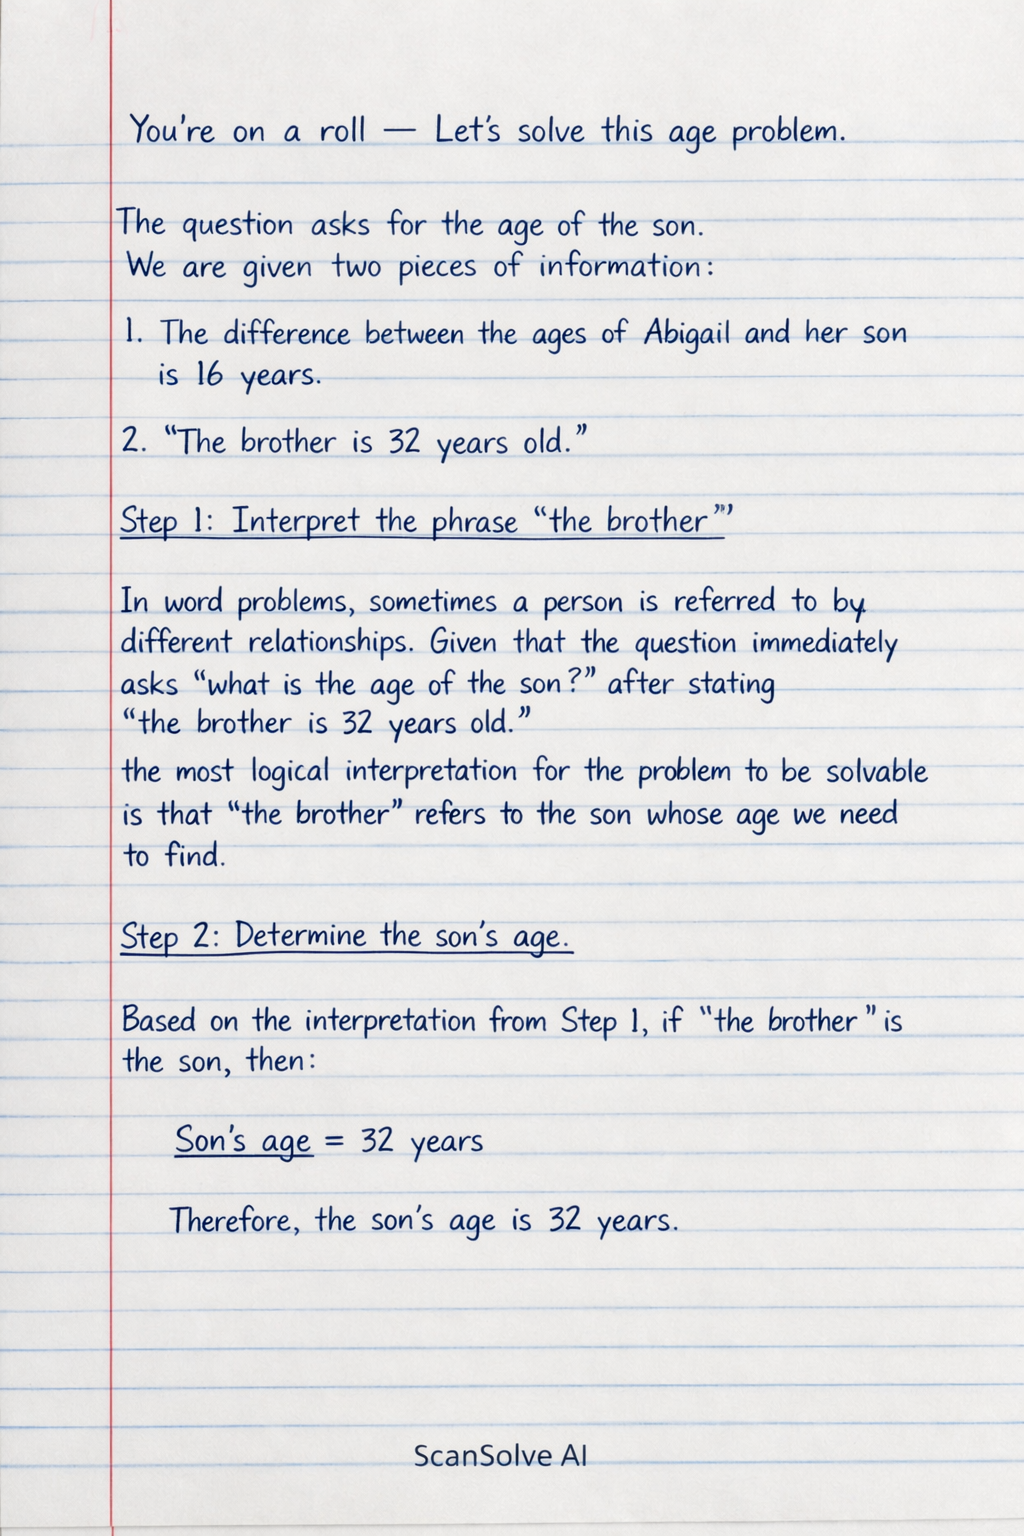 You're on a roll — Let's solve this age problem.
The question asks for the age of the son.
We are given two pieces of information:
1. The difference between the ages of Abigail and her son
is 16 years.
2. “The brother is 32 years old.”
Step 1: Interpret the phrase “the brother”’”
In word problems, sometimes a person is referred to by
different relationships. Given that the question immediately
asks “what is the age of the son?” after stating
“the brother is 32 years old.”
the most logical interpretation for the problem to be solvable
is that “the brother” refers to the son whose age we need
to find.
Step 2: Determine the son's age.
Based on the interpretation from Step 1, if “the brother” is
the son, then:
Son's age = 32 years
Therefore, the son's age is 32 years.
ScanSolve AI